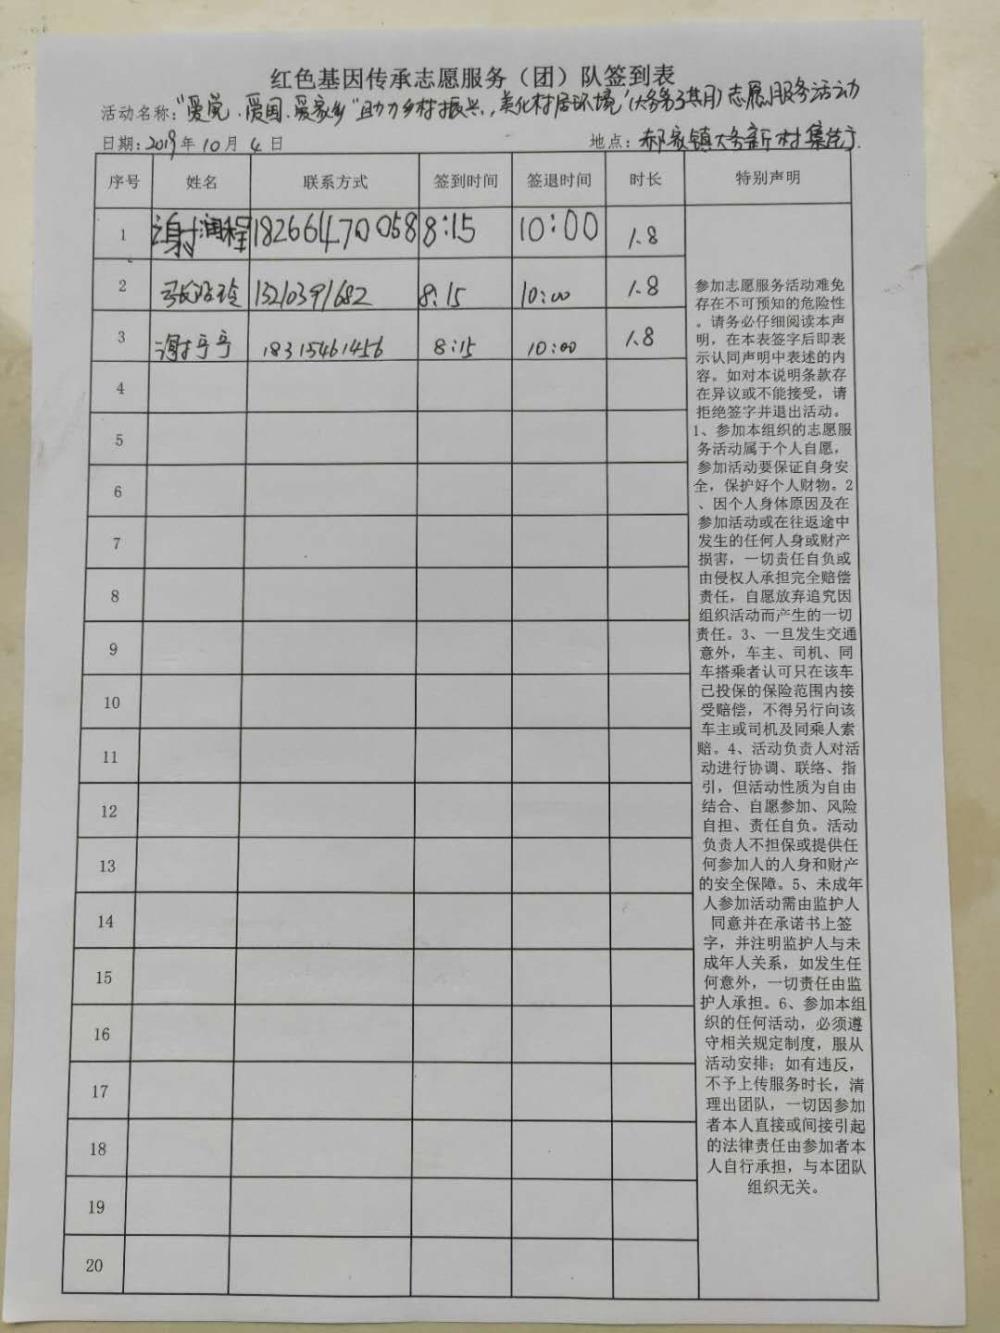 红色基因传承志愿服务（团）队签到表
活动名称："爱党、爱国、爱家乡"助力乡村振兴，美化村居环境"(大务第3其月)志愿服务活动
日期：2019年10月4日 地点：郝家镇大务新村集街
序号 姓名 联系方式 签到时间 签退时间 时长 特别声明
1 谢润程 18266470058 8:15 10:00 1.8
2 13210391682 8:15 10:00 1.8
3 谢亏亏 18315461456 8:15 10:00 1.8
4
5
6
7
8
9
10
11
12
13
14
15
16
17
18
19
20
参加志愿服务活动难免
存在不可预知的危险性
。请务必仔细阅读本声
明，在本表签字后即表
示认同声明中表述的内
容。如对本说明条款存
在异议或不能接受，请
拒绝签字并退出活动。
1、参加本组织的志愿服
务活动属于个人自愿，
参加活动要保证自身安
全，保护好个人财物。2
、因个人身体原因及在
参加活动或在往返途中
发生的任何人身或财产
损害，一切责任自负或
由侵权人承担完全赔偿
责任，自愿放弃追究因
组织活动而产生的一切
责任。3、一旦发生交通
意外，车主、司机、同
车搭乘者认可只在该车
已投保的保险范围内接
受赔偿，不得另行向该
车主或司机及同乘人索
赔。4、活动负责人对活
动进行协调、联络、指
引，但活动性质为自由
结合、自愿参加、风险
自担、责任自负。活动
负责人不担保或提供任
何参加人的人身和财产
的安全保障。5、未成年
人参加活动需由监护人
同意并在承诺书上签
字，并注明监护人与未
成年人关系，如发生任
何意外，一切责任由监
护人承担。6、参加本组
织的任何活动，必须遵
守相关规定制度，服从
活动安排；如有违反，
不予上传服务时长，清
理出团队，一切因参加
者本人直接或间接引起
的法律责任由参加者本
人自行承担，与本团队
组织无关。